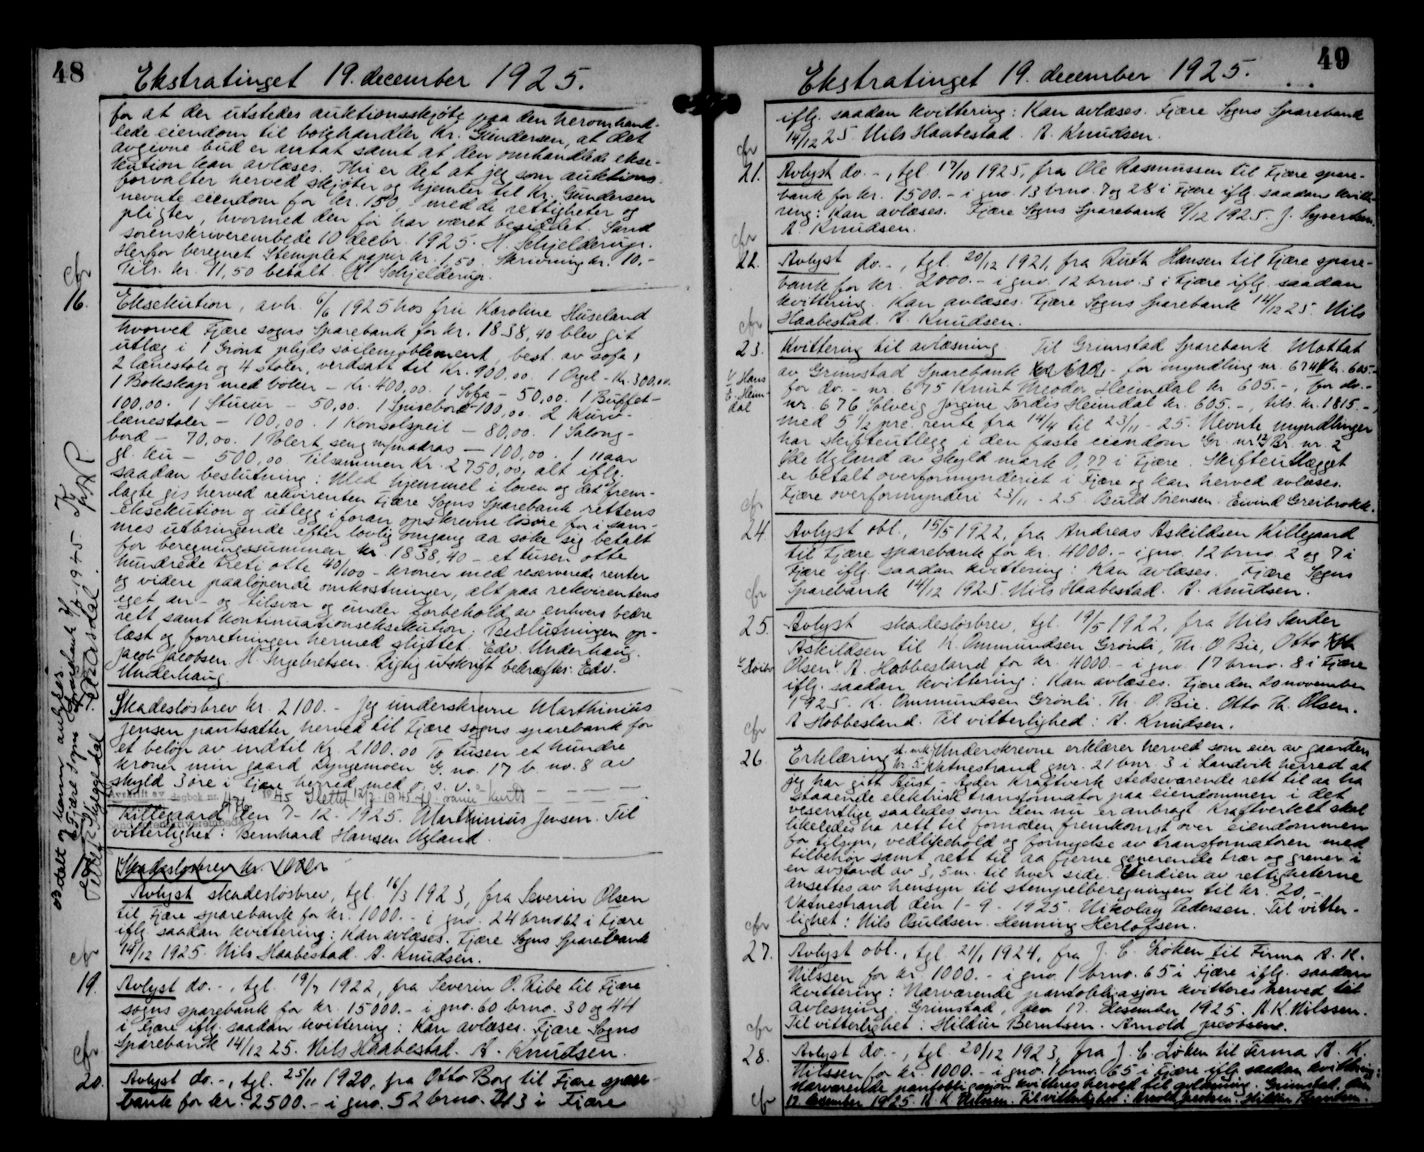 48
Ekstratinget 19. december 1925.
for at der utstedes auktionsskjøte paa den heromhand-
lede eiendom til bokhandler Kr. Gundersen, at det
avgivne bud er antat samt at den omhandlede ekse-
kution kan avlæses. Thi er det at jeg som auktions-
forvalter herved skjøter og hjemler til Kr. Gundersen
nevnte eiendom for kr. 150.- med de rettigheter og
pligter, hvormed den før har været besiddet. Sand
sorenskriverembede 10 decbr. 1925. H. Schjelderup.
Herfor beregnet Stemplet papir kr. 1,50. Skrivning kr. 10.-
Tils. kr. 11,50 betalt H. Schjelderup.
cfr
16. Eksekution, avh. 6/6 1925 hos fru Karoline Huseland
hvorved Fjære sogns Sparebank for kr. 1838,40 blev git
utlæg i 1 Grønt plyds søilemøblement, best. av sofa,
2 lænestole og 4 stoler, verdsatt til kr. 900,00. 1 Orgel - kr. 300,00.
1 Bokskap med bøker - kr. 400,00. 1 Sofa - 50,00. 1 Buffet -
100,00. 1 Stueur - 50,00. 1 Spisebord - 100,00. 2 Kurv-
lænestoler - 100,00. 1 Konsolspeil - 80,00. 1 Salong-
bord - 70,00. 1 Blert seng m/madras - 100,00. 1 11 aar
gl. ku - 500,00 Tilsammen kr. 2750,00, alt iflg.
saadan beslutning: Med hjemmel i loven og det frem-
lagte gis herved rekvirenten Fjære Sogns Sparebank rettens
eksekution og utlegg i foran opskrevne løsøre for i sam-
mes utbringende efter lovlig omgang aa søke sig betalt
for beregningssummen kr. 1838,40 - et tusen otte
hundrede treti otte 40/100 - kroner med reserverede renter
og videre paaløpende omkostninger, alt paa rekvirentens
eget an- og tilsvar og under forbehold av enhvers bedre
rett samt kontinuationseksekution; Beslutningen op-
læst og forretningen hermed sluttet. Edv. Underhaug.
Jacob Jacobsen. H. Ingebretsen. Rigtig utskrift bekræftes: Edv.
Underhaug.
Skadesløsbrev kr. 2100.- Jeg underskrevne Marthinius
Jensen pantsætter herved til Fjære sogns sparebank for
et beløp av indtil kr. 2100.00 To tusen et hundre
kroner min gaard Lyngemoen G. no. 17 b. no. 8 av
skyld 3 øre i Fjære herred med p. s. v.
Killegaard den 7-12-1925. Marthinius Jensen. Til
vitterlighet: Bernhard Hansen Ugland.
Skadesløsbrev kr.
Avlyst skadesløsbrev, tgl. 16/3 1923, fra Severin Olsen
til Fjære sparebank for kr. 1000.- i gno. 24 brno 62 i Fjære
iflg. saadan kvittering: Kan avlæses. Fjære Sogns Sparebank
14/12 1925. Nils Haabestad. A. Knudsen.
cfr
19. Avlyst do.-, tgl. 19/7 1922, fra Severin O. Ribe til Fjære
sogns sparebank for kr. 15000.- i gno. 60 brno. 30 og 44
i Fjære iflg. saadan kvittering: Kan avlæses. Fjære Sogns
Sparebank 14/12 25. Nils Haabestad. A. Knudsen.
cfr
20. Avlyst do.-, tgl. 25/11 1920, fra Otto Borg til Fjære spare-
bank for kr. 2500.- i gno. 52 brno. 213 i Fjære
49
Ekstratinget 19. december 1925.
iflg. saadan kvittering: Kan avlæses. Fjære Sogns Sparebank
14/12 25 Nils Haabestad. A. Knudsen.
cfr
21. Avlyst do.-, tgl. 17/10 1925, fra Ole Rasmussen til Fjære spare-
bank for kr. 1500.- i gno. 13 brno. 7 og 28 i Fjære iflg. saadan kvitte-
ring: Kan avlæses. Fjære Sogns Sparebank 9/12 1925. J. Syvertsen.
A. Knudsen.
cfr
22. Avlyst do.-, tgl. 20/12 1921, fra Berth Hansen til Fjære spare-
bank for kr. 2000.- i gno. 12 brno. 3 i Fjære iflg. saadan
kvittering. Kan avlæses. Fjære Sogns Sparebank 14/12 25. Nils
Haabestad. A. Knudsen.
cfr
23. Kvittering til avlæsning. Til Grimstad Sparebank Mottat
av Grimstad Sparebank for myndling nr. 674 kr. 605.-
for do.- nr. 675 Knut Theodor Heimdal kr. 605.-, for do.-
nr. 676 Solveig Jørgine Tordis Heimdal kr. 605.-, tils. kr. 1815.-,
med 5 1/2 pct. rente fra 14/4 til 23/11-25. Nevnte myndlinger
har skifteutlegg i den faste eiendom Gr. nr. 12 Br. nr. 2
Øde Ugland av skyld mark 0,77 i Fjære. Skifteutlægget
er betalt overformynderiet i Fjære og kan herved avlæses.
Fjære overformynderi 23/11-25 Buld Sørensen. Eivind Greibrokk.
cfr
24. Avlyst obl., 15/5 1922, fra Andreas Askildsen Killegaard
til Fjære sparebank for kr. 4000.- i gno. 12 brno. 2 og 7 i
Fjære iflg. saadan kvittering: Kan avlæses. Fjære Sogns
Sparebank 14/12 1925. Nils Haabestad. A. Knudsen.
cfr
25. Avlyst skadesløsbrev, tgl. 19/5 1922, fra Nils Sander
Askildsen til K. Ommundsen Grønli, Th. O. Bie, Otto Th.
Olsen & A. Hobbesland for kr. 4000.- i gno. 17 brno. 8 i Fjære
iflg. saadan kvittering: Kan avlæses. Fjære den 20 november
1925. K. Ommundsen Grønli. Th. O. Bie. Otto Th. Olsen.
A. Hobbesland. Til vitterlighet: A. Knudsen.
cfr
26. Erklæring Underskrevne erklærer herved som eier av gaarden
Vatnestrand gnr. 21 bnr. 3 i Landvik herred at
jeg har gitt Aust-Agder Kraftverk stedsevarende rett til aa ha
staaende elektrisk transformator paa eiendommen i det
vesentlige saaledes som den nu er anbragt. Kraftverket skal
likeledes ha rett til fornøden fremkomst over eiendommen
for tilsyn, vedlikehold og fornyelse av transformatoren med
tilbehør samt rett til aa fjerne generende trær og grener i
en avstand av 3,5 m. til hver side. Verdien av rettigheterne
ansettes av hensyn til stempelberegningen til kr. 20,-
Vatnestrand den 1-9-1925. Nikolay Pedersen. Til vitter-
lighet: Nils Osuldsen. Henning Herlofsen.
cfr
27. Avlyst obl., tgl. 21/1 1924, fra J. C. Løken til Firma A. K.
Nilssen for kr. 1000.- i gno. 1 brno. 65 i Fjære iflg. saadan
kvittering: Nærværende pantobligasjon kvitteres herved til
avlesning. Grimstad, den 17. desember 1925. A. K. Nilssen.
Til vitterlighet: Hildur Berntsen. Arnold Jacobsen.
cfr
28. Avlyst do.-, tgl. 20/12 1923, fra J. C. Løken til Firma A. K.
Nilssen for kr. 1000.- i gno. 1 brno. 65 i Fjære iflg. saadan kvittering:
Nærværende pantobligasjon kvitteres herved til avlesning. Grimstad, den
17. desember 1925. A. K. Nilssen. Til vitterlighet: Arnold Jacobsen. Hildur Berntsen.
cfr